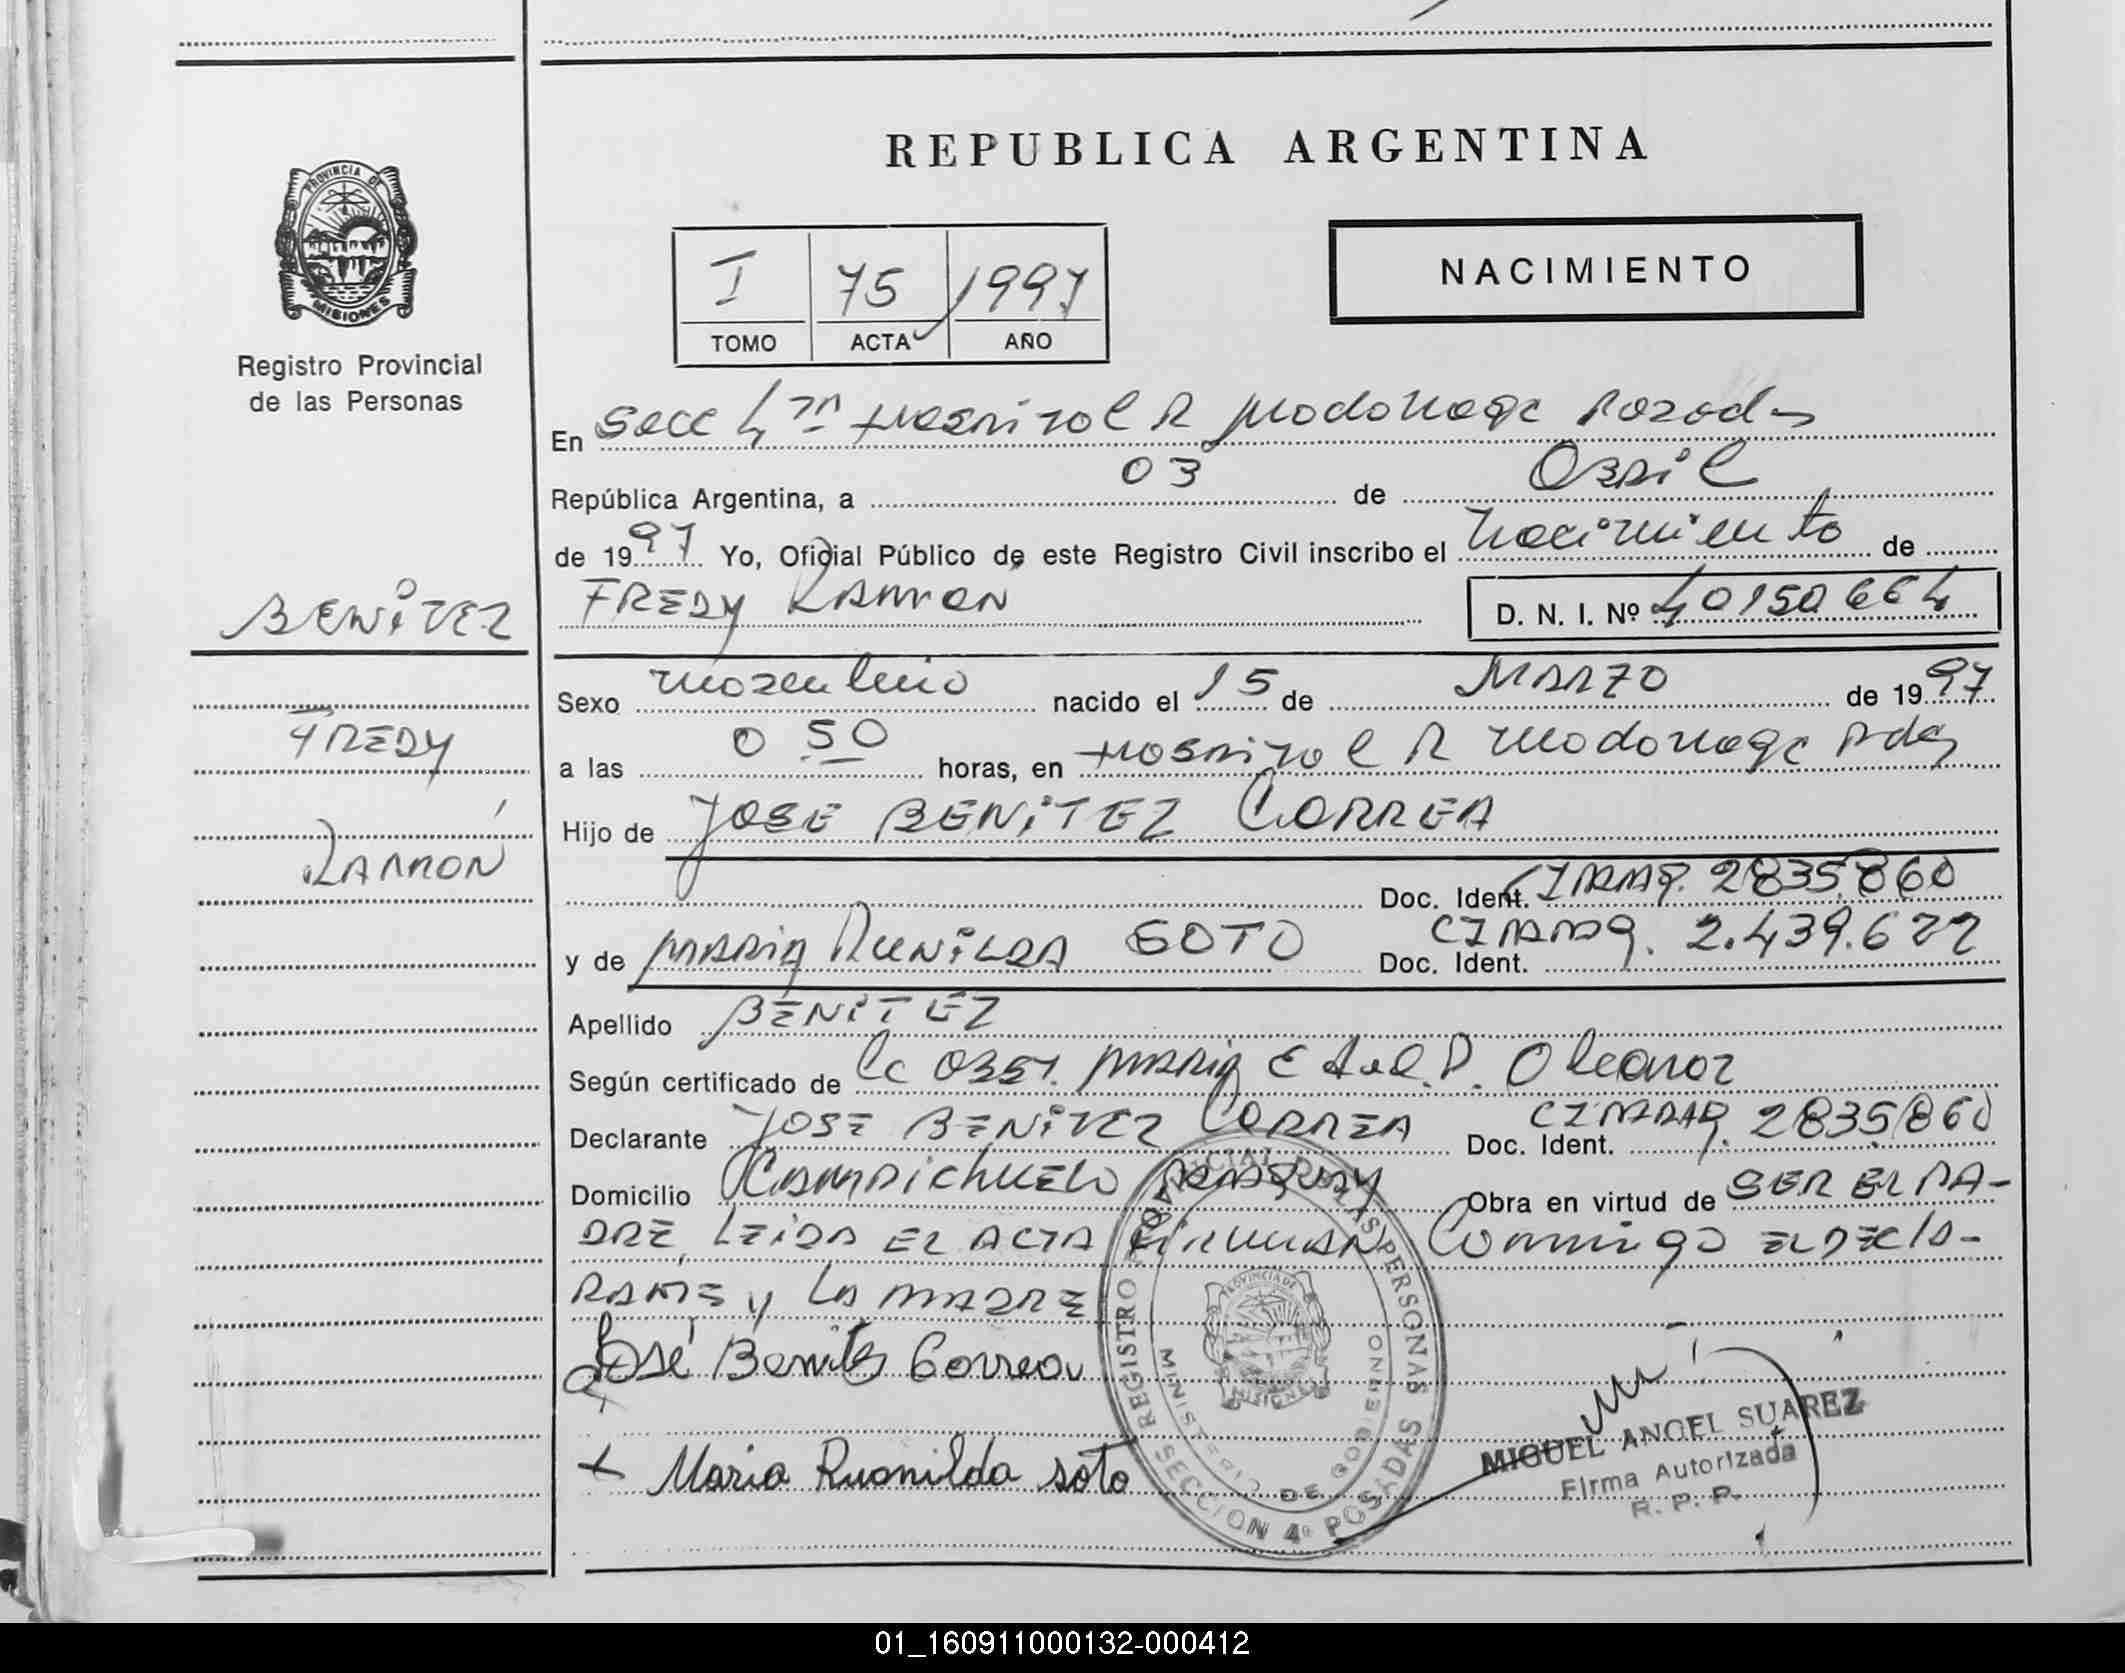 REPUBLICA ARGENTINA
PROVINCIA DE
MISIONES
Registro Provincial
de las Personas
I 75 1997
TOMO ACTA AÑO
NACIMIENTO
En Secc 4ta Hospital R Madariaga Posadas
República Argentina, a 03 de Abril
de 1997 Yo, Oficial Público de este Registro Civil inscribo el Nacimiento de
FREDY RAMON D. N. I. Nº 40150664
BENITEZ
FREDY
RAMÓN
Sexo masculino nacido el 15 de MARZO de 1997
a las 0 50 horas, en Hospital R Madariaga Pdas
Hijo de JOSE BENITEZ CORREA
Doc. Ident. 2835.860
y de MARIA RUNILDA SOTO Doc. Ident. 2.439.622
Apellido BENITEZ
Según certificado de la OBST. MARIA
Declarante JOSE BENITEZ CORREA Doc. Ident. 2835.860
Domicilio CAMPICHUELO Obra en virtud de SER EL PA-
DRE, LEIDA EL ACTA FIRMAN Conmigo EL DECLA-
RANTE y LA MADRE
José Benites Correa
+ Maria Rumilda soto
REGISTRO PROVINCIAL DE LAS PERSONAS
MINISTERIO DE GOBIERNO
PROVINCIA DE
MISIONES
SECCION 4ª POSADAS
MIGUEL ANGEL SUAREZ
Firma Autorizada
R. P. P.
01_160911000132-000412